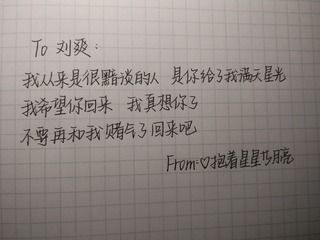 To 刘爽:
我从来是很黯谈的人 是你给了我满天星光
我希望你回来 我真想你了
不要再和我赌气了回来吧
From:♡抱着星星与月亮